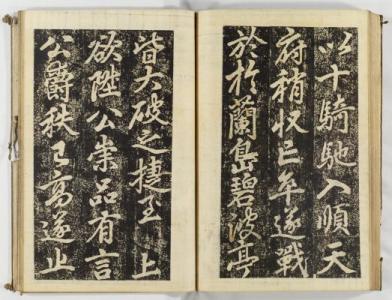 以十騎馳入順天
府稍收亡卒遂戰
於於蘭島碧波亭
皆大破之捷至上
欲陞公崇品有言
公爵秩已高遂止